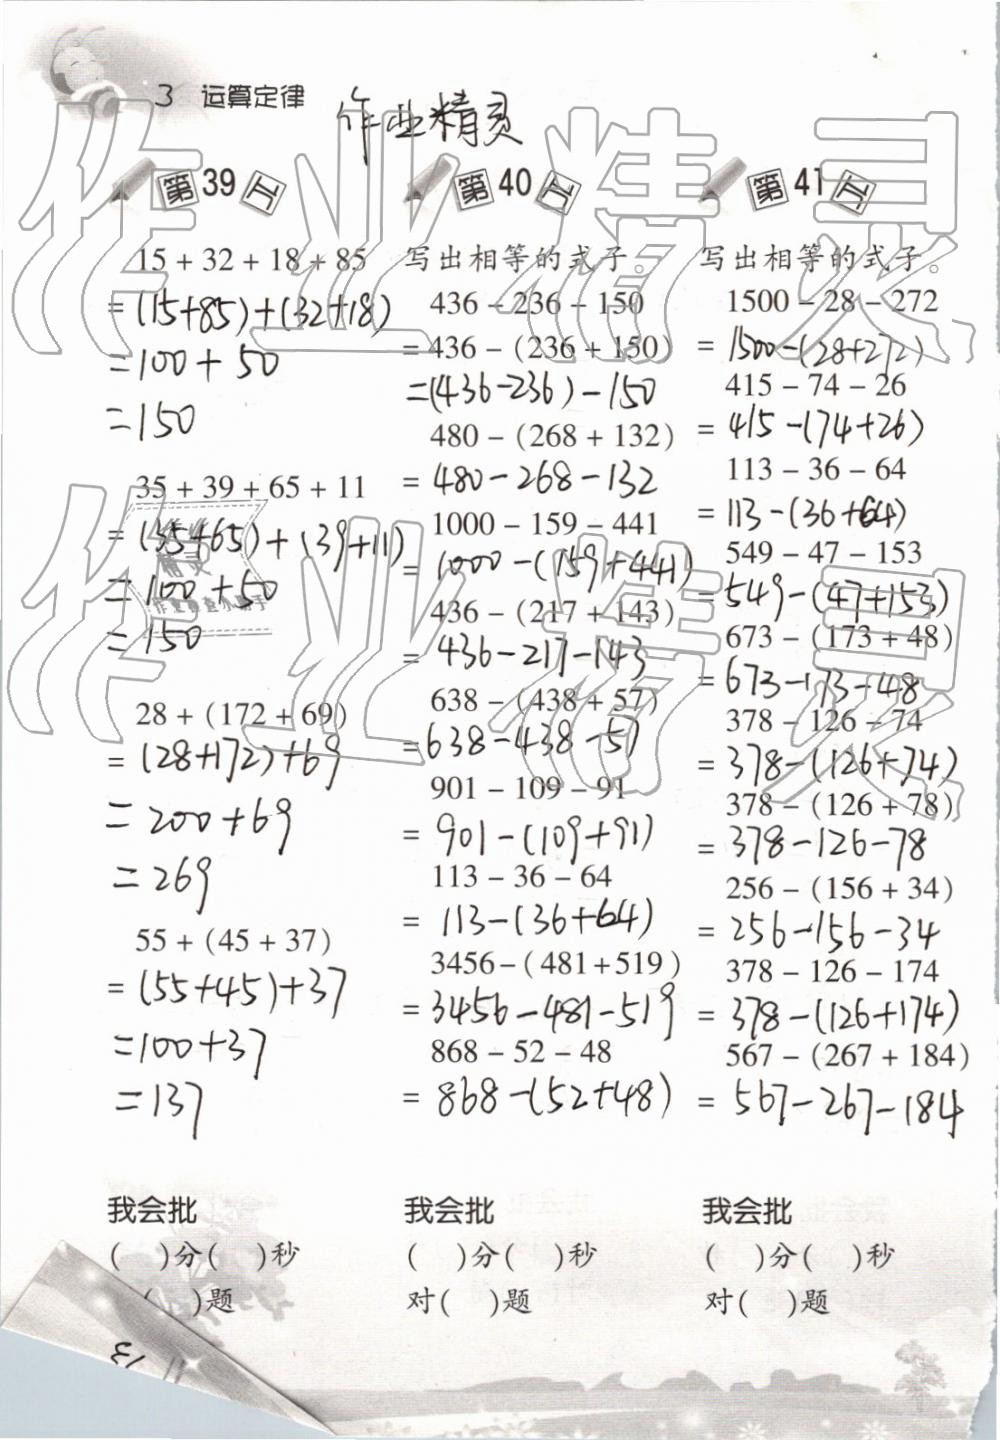 3 运算定律
作业精灵
第39页
15 + 32 + 18 + 85
= (15+85)+(32+18)
= 100 + 50
= 150
35 + 39 + 65 + 11
= (35+65)+(39+11)
= 100 + 50
= 150
28 + (172 + 69)
= (28+172)+69
= 200+69
= 269
55 + (45 + 37)
= (55+45)+37
= 100+37
= 137
我会批
( )分( )秒
( )题
第40页
写出相等的式子。
436 - 236 - 150
= 436 - (236 + 150)
= (436-236) - 150
480 - (268 + 132)
= 480-268-132
1000 - 159 - 441
= 1000-(159+441)
436 - (217 + 143)
= 436-217-143
638 - (438 + 57)
= 638-438-57
901 - 109 - 91
= 901-(109+91)
113 - 36 - 64
= 113-(36+64)
3456-(481+519)
= 3456-481-519
868 - 52 - 48
= 868-(52+48)
我会批
( )分( )秒
对( )题
第41页
写出相等的式子。
1500 - 28 - 272
= 1500-(28+272)
415 - 74 - 26
= 415-(74+26)
113 - 36 - 64
= 113-(36+64)
549 - 47 - 153
= 549-(47+153)
673 - (173 + 48)
= 673-173-48
378 - 126 - 74
= 378-(126+74)
378 - (126 + 78)
= 378-126-78
256 - (156 + 34)
= 256-156-34
378 - 126 - 174
= 378-(126+174)
567 - (267 + 184)
= 567-267-184
我会批
( )分( )秒
对( )题
作业精灵
作业精灵